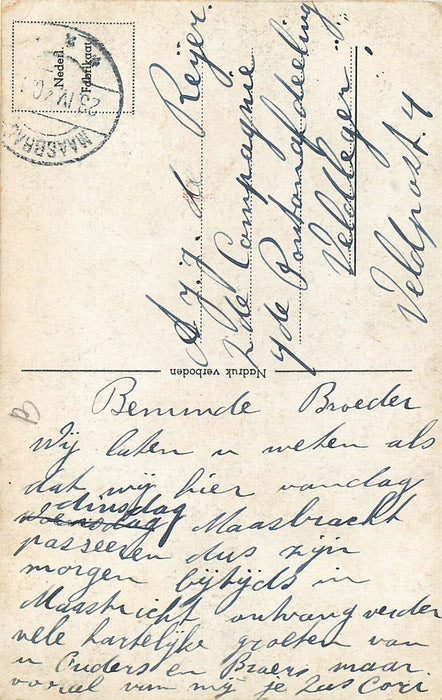 Nederl.
Fabrikaat
MAASBRA
23 IV 40
A. J. J. de Reijer.
2de Compagnie
4de Pontonafdeeling
"Veldleger"
Veldpost. 4
Nadruk verboden
Beminde Broeder
Wij laten u weten als
dat wij hier vandag
dinsdag
woensdag Maasbracht
passeeren dus zijn
morgen bijtijds in
Maastricht ontvang verder
vele hartelijke groeten van
u Ouders en Broers maar
vooral van mij je Zus Cori